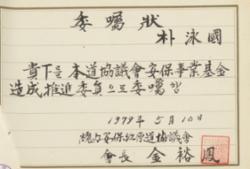 委囑狀
朴泳國
貴下를 本道協議會安保事業基金
造成推進委員으로委囑함
1979年 5月 10日
江原道協議會
會長 金裕鳳